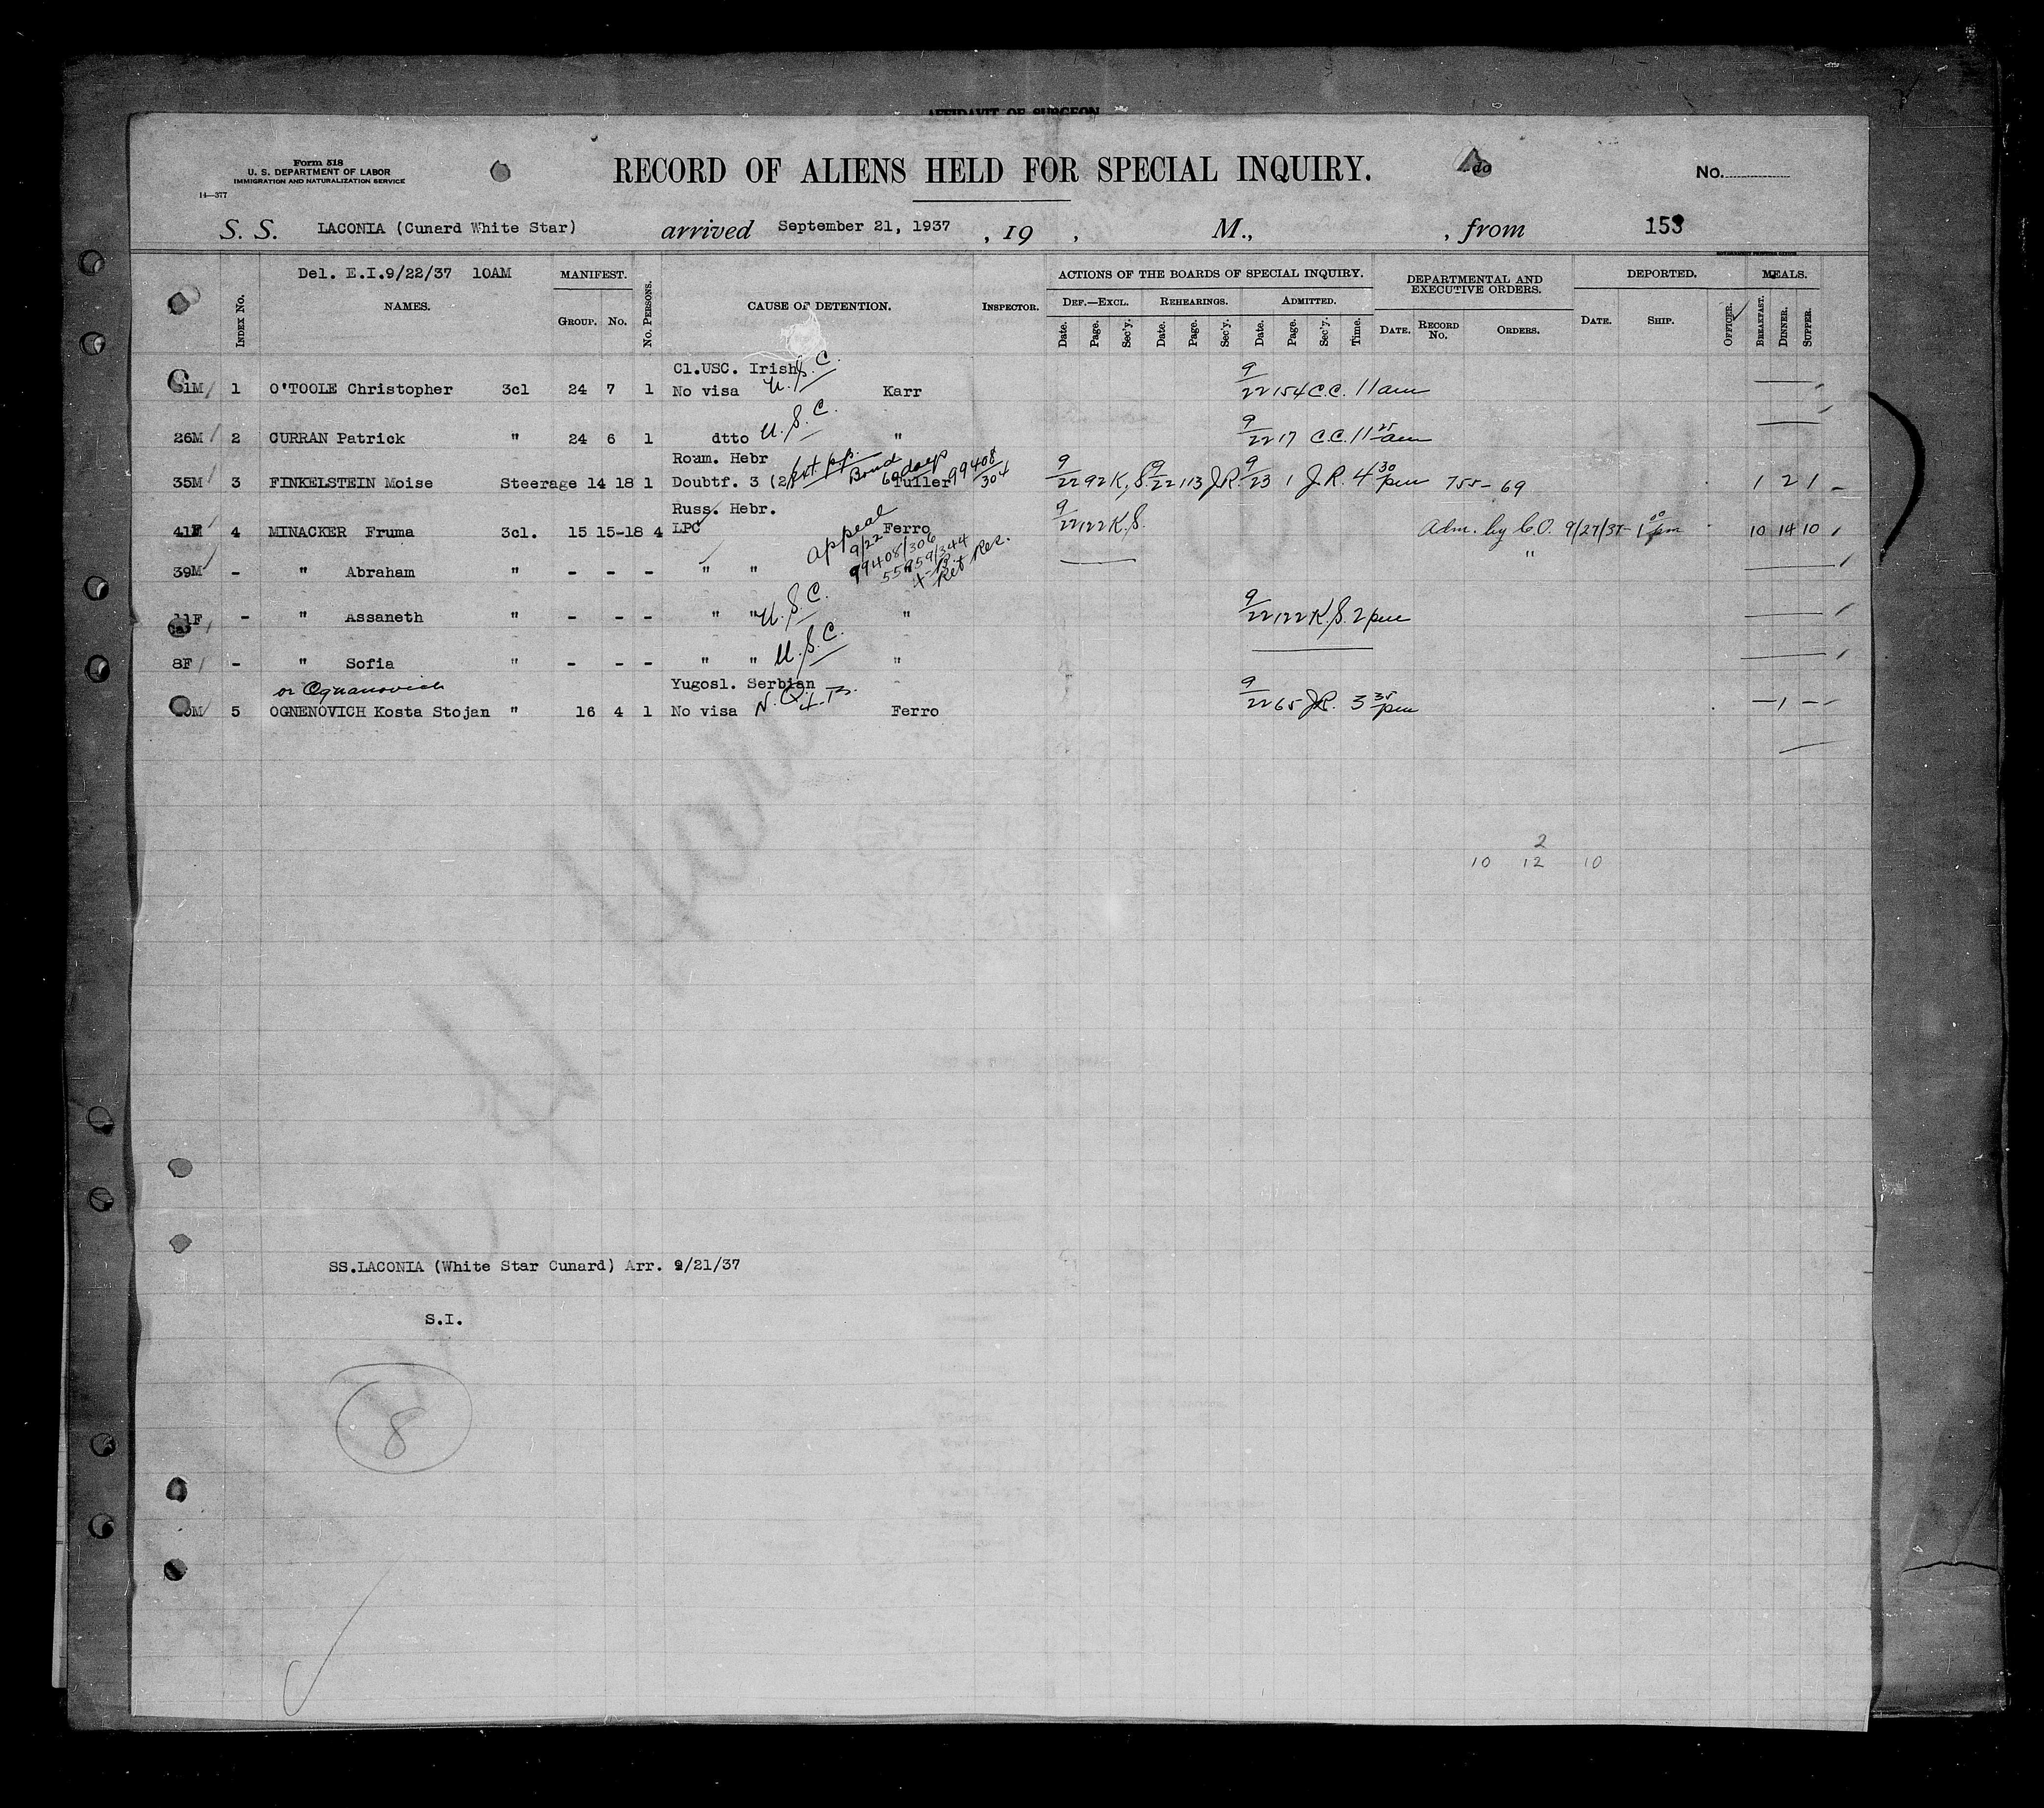 AFFIDAVIT OF SURGEON
Form 518
U. S. DEPARTMENT OF LABOR
IMMIGRATION AND NATURALIZATION SERVICE
14—377
RECORD OF ALIENS HELD FOR SPECIAL INQUIRY.
do
No.
S. S. LACONIA (Cunard White Star) arrived September 21, 1937, 19 , M., , from 153
Del. E.I.9/22/37 10AM
MANIFEST. ACTIONS OF THE BOARDS OF SPECIAL INQUIRY. DEPARTMENTAL AND EXECUTIVE ORDERS. DEPORTED. MEALS.
INDEX No. NAMES. GROUP. No. No. PERSONS. CAUSE OF DETENTION. INSPECTOR. DEF.—EXCL. REHEARINGS. ADMITTED.
Date. Page. Sec'y. Date. Page. Sec'y. Date. Page. Sec'y. Time. DATE. RECORD No. ORDERS. DATE. SHIP. OFFICER. BREAKFAST. DINNER. SUPPER.
Cl.USC. Irish U.S.C.
1M 1 O'TOOLE Christopher 3cl 24 7 1 No visa Karr 9/22 154 C.C. 11 am
26M 2 CURRAN Patrick " 24 6 1 dtto U.S.C. " 9/22 17 C.C. 11 25 am
Roum. Hebr
35M 3 FINKELSTEIN Moise Steerage 14 18 1 Doubtf. 3 (2) Bond 60 days Tuller 99408/304 9/22 92 K.S. 9/22 113 J.R. 9/23 1 J.R. 4 30 pm 755-69 1 2 1
Russ. Hebr.
41F 4 MINACKER Fruma 3cl. 15 15-18 4 LPC appeal 9/22 Ferro 9/22 122 K.S. Adm. by C.O. 9/27/37- 1 00 pm 10 14 10
99408/306
39M - " Abraham " - - - " " 55959/344 "
4-B. Ret Res.
11F - " Assaneth " - - - " " U.S.C. " 9/22 122 K.S. 2 pm
8F - " Sofia " - - - " " U.S.C. "
or Ognanovich Yugosl. Serbian
0M 5 OGNENOVICH Kosta Stojan " 16 4 1 No visa N.Q. 4-B. Ferro 9/22 65 J.R. 3 35 pm - 1 -
2
10 12 10
SS.LACONIA (White Star Cunard) Arr. 9/21/37
S.I.
8